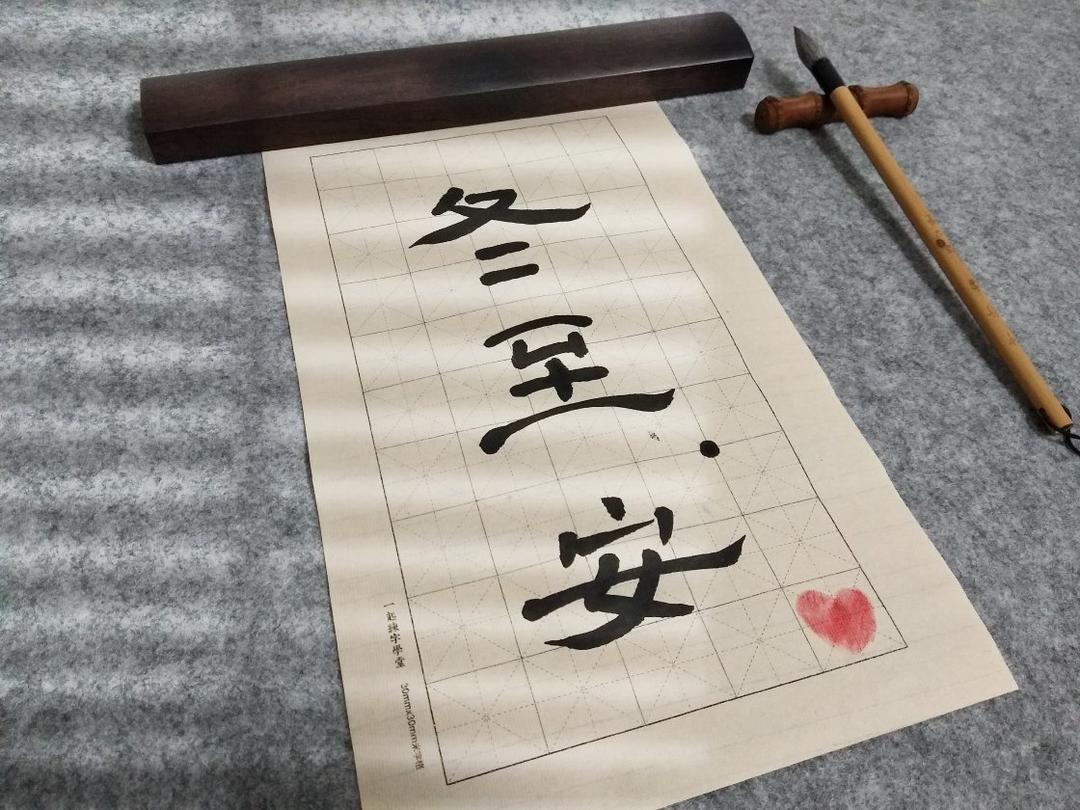 冬至·安
一起練字學堂 30mmx30mm米字格